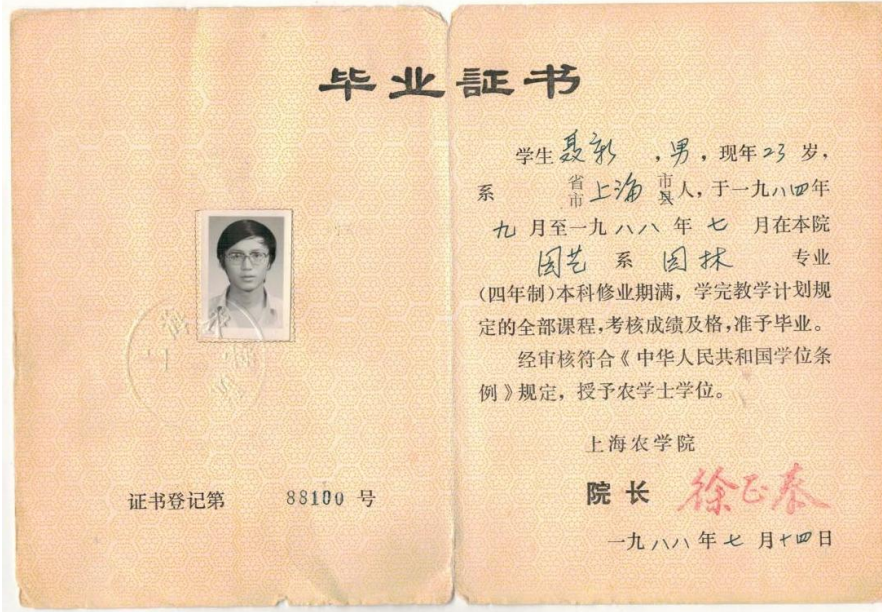 毕业証书
学生聂新，男，现年23岁，
系 省市上海市县人，于一九八四年
九月至一九八八年七月在本院
园艺系园林专业
(四年制)本科修业期满，学完教学计划规
定的全部课程，考核成绩及格，准予毕业。
经审核符合《中华人民共和国学位条
例》规定，授予农学士学位。
上海农学院
院长 徐正泰
一九八八年七月十四日
证书登记第 88100 号